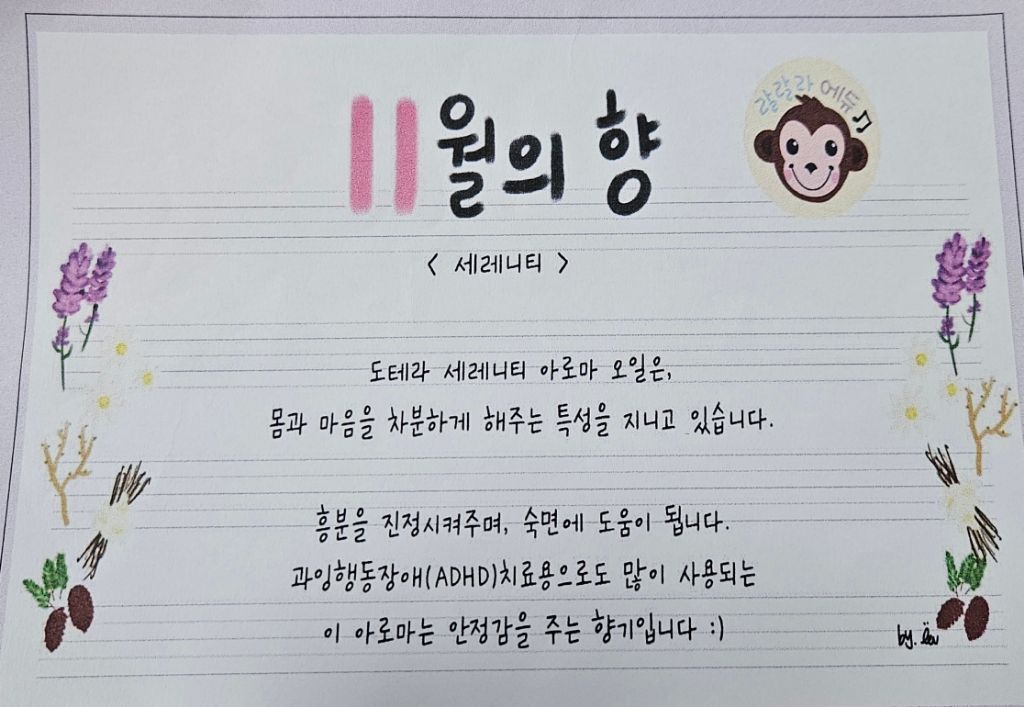 11월의 향
랄랄라 에듀
< 세레니티 >
도테라 세레니티 아로마 오일은,
몸과 마음을 차분하게 해주는 특성을 지니고 있습니다.
흥분을 진정시켜주며, 숙면에 도움이 됩니다.
과잉행동장애(ADHD)치료용으로도 많이 사용되는
이 아로마는 안정감을 주는 향기입니다 :)
by.